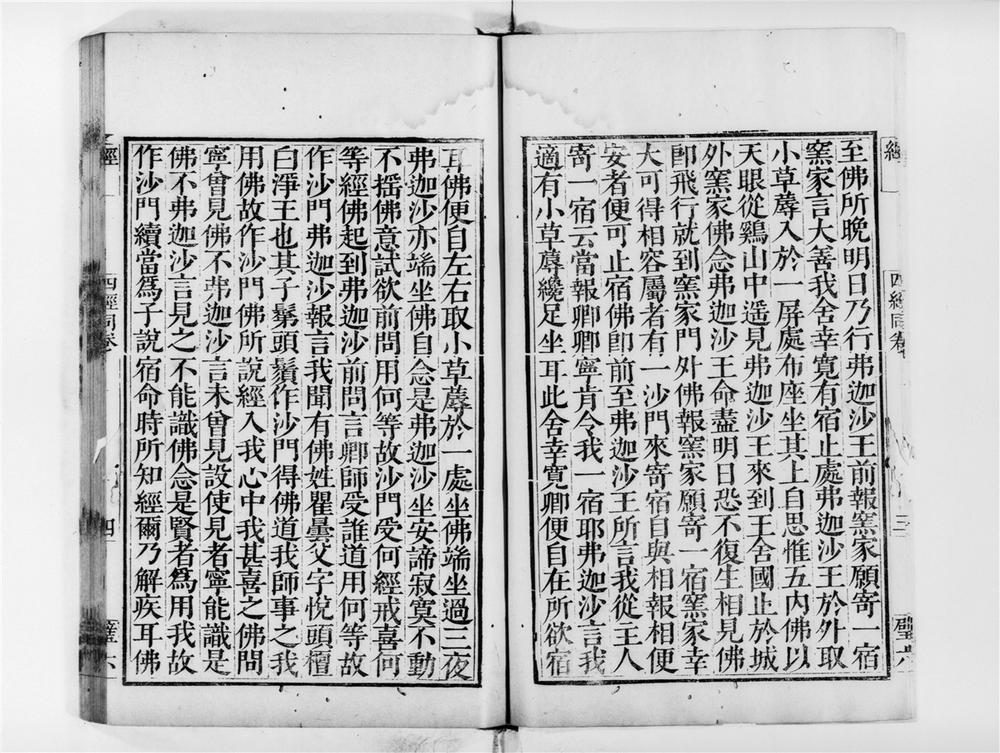 至佛所晚明日乃行弗迦沙王前報窯家願寄一宿
窯家言大善我舍幸寬有宿止處弗迦沙王於外取
小草蓐入於一屏處布座坐其上自思惟五內佛以
天眼從鷄山中遥見弗迦沙王來到王舍國止於城
外窯家佛念弗迦沙王命盡明日恐不復生相見佛
卽飛行就到窯家門外佛報窯家願寄一宿窯家幸
大可得相容屬者有一沙門來寄宿自與相報相便
安者便可止宿佛卽前至弗迦沙王所言我從主人
寄一宿云當報卿卿寧肯令我一宿耶弗迦沙言我
適有小草蓐纔足坐耳此舍幸寬卿便自在所欲宿
四經同卷
三
璧六
耳佛便自左右取小草蓐於一處坐佛端坐過三夜
弗迦沙亦端坐佛自念是弗迦沙坐安諦寂寞不動
不摇佛意試欲前問用何等故沙門受何經戒喜何
等經佛起到弗迦沙前問言卿師受誰道用何等故
作沙門弗迦沙報言我聞有佛姓瞿曇父字悅頭檀
白淨王也其子鬀頭鬚作沙門得佛道我師事之我
用佛故作沙門佛所說經入我心中我甚喜之佛問
寧曾見佛不弗迦沙言未曾見設使見者寧能識是
佛不弗迦沙言見之不能識佛念是賢者爲用我故
作沙門續當爲子說宿命時所知經爾乃解疾耳佛
經
四經同卷
四
璧六